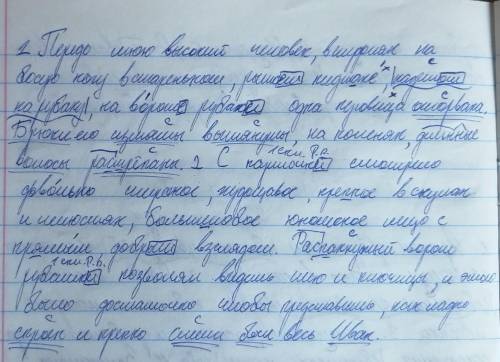 1 Передо мною высокий человек, в туфлях на
босую ногу в стареньком, рыжем пиджаке, надетом
на рубаху, на вороте рубахи одна пуговица оторвана.
Брюки его измяты вытянуты, на коленях, длинные
волосы растрёпаны. 2 С карточки 1 скл. Р.п. смотрело
довольно широкое, худощавое, крепкое в скулах
и челюстях, большелобое юношеское лицо с
прямым добрым взглядом. Распахнутый ворот
1 скл. Р.п.
рубашки позволял видеть шею и ключицы, и этого
было достаточно чтобы представить, как ладно
строен и крепко сшит был весь Иван.